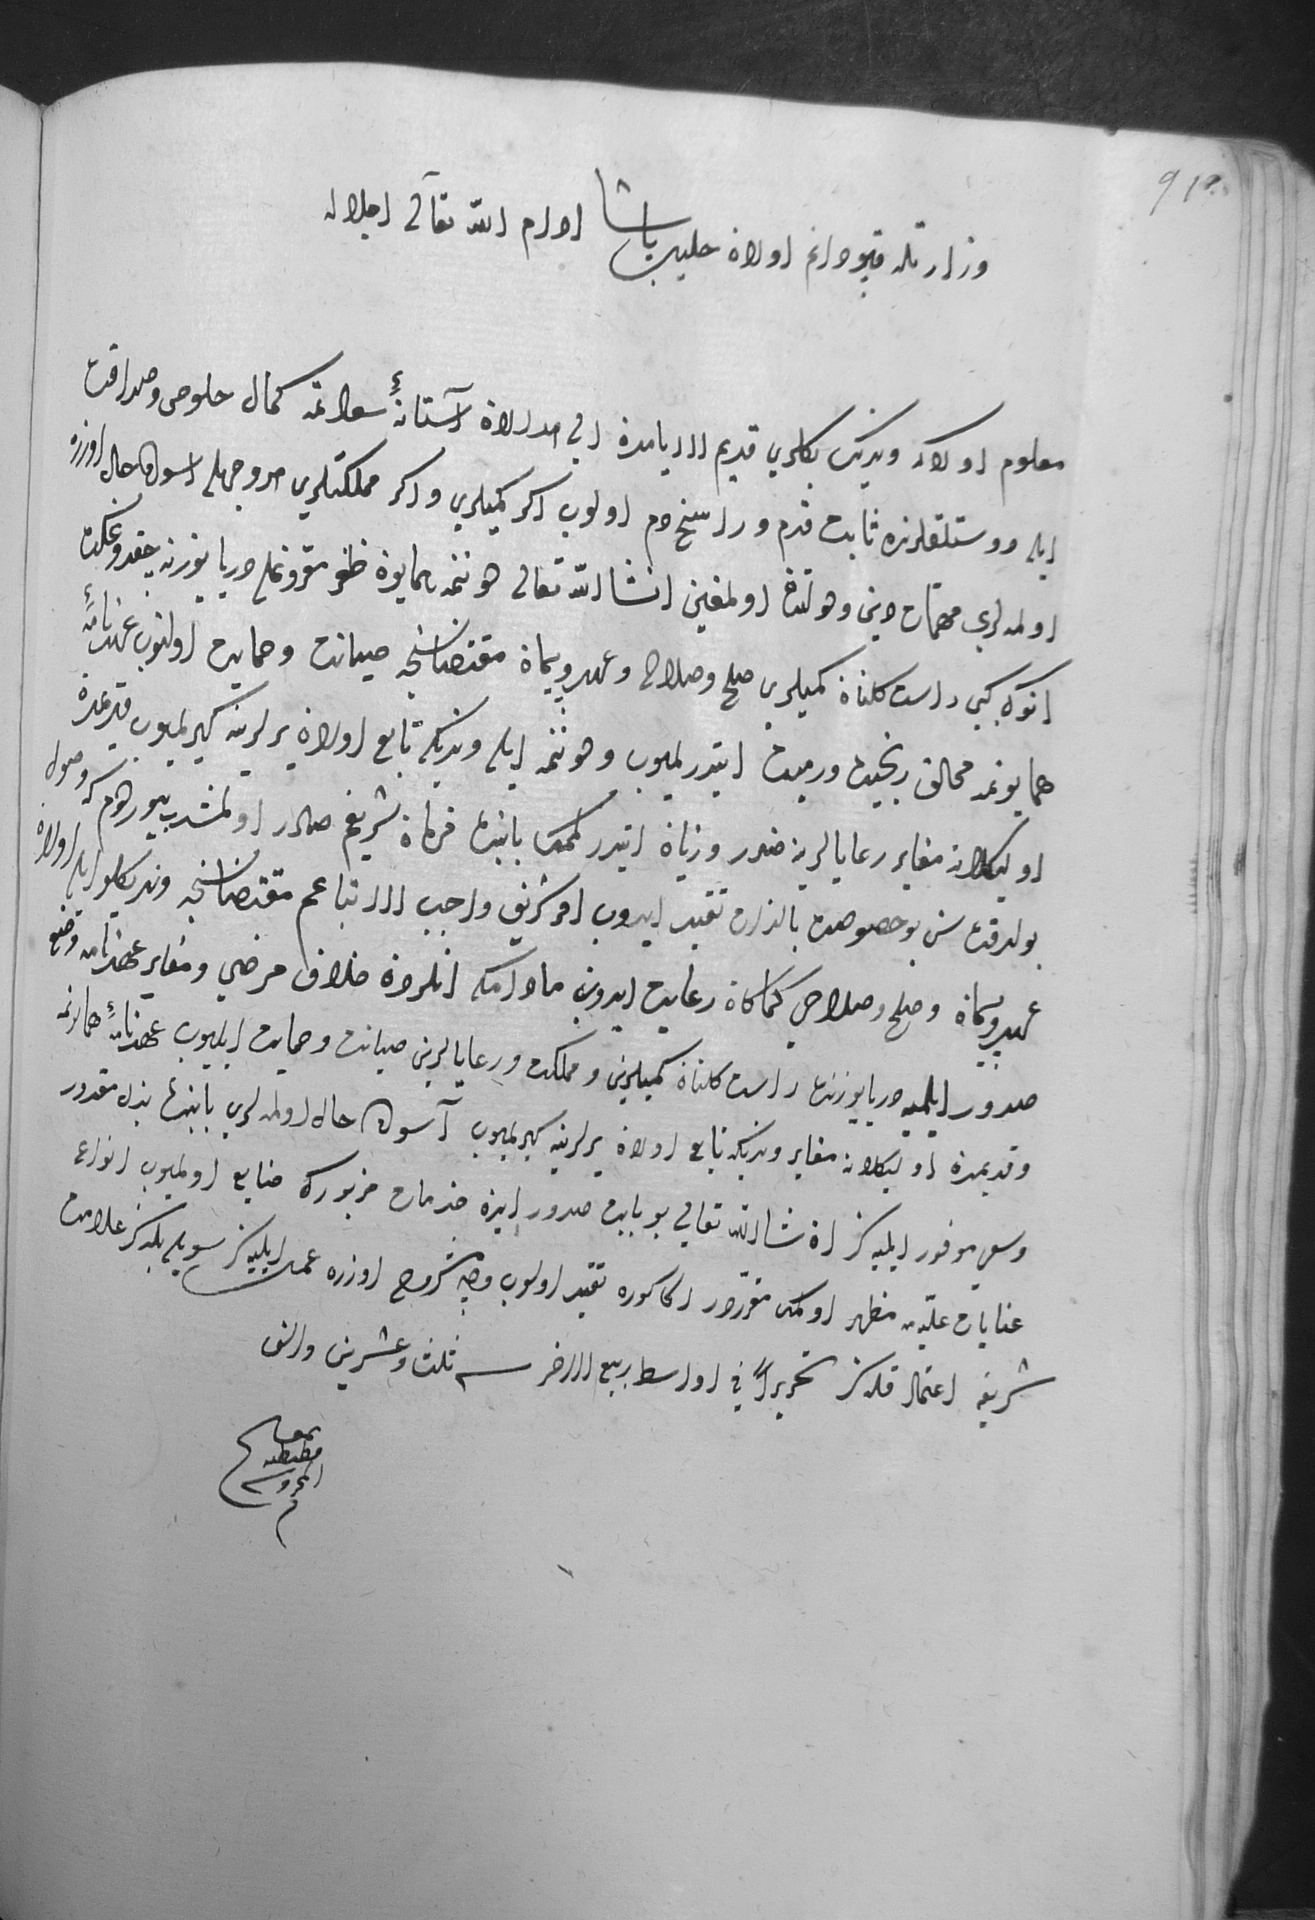 91
وزارتله قپودانم اولان خليل پاشا ادام الله تعالى اجلاله
معلوم اولاكه ونديك بكلري قديم الايامدن الى هذا الان آستانۀ سعادتمه كمال خلوص وصداقت
ايله دوستلقلرنده ثابت قدم وراسخ دم اولوب اكر كميلري واكر مملكتلري هر وجهله اسوده حال اوزره
اولمه لري مهمات دين ودولتدن اولمغين انشا الله تعالى دوننمه همايون ظفر مقرونمله دريا يوزنه چقدوغكده
انوك كبي راست كلنان كميلري صلح وصلاح وعهد وپيمان مقتضاسنجه صيانت وحمايت اولنوب عهدنامۀ
همايونمه مخالف رنجيده ورميده ايتدرلميوب ودوننمه ايله ونديكه تابع اولان يرلرينه كيرلميوب قديمدن
اوليكلانه مغاير رعايالرينه ضرر وزيان ايتدرلمك بابنده فرمان شريفم صادر اولمشدر بيوردم كه وصول
بولدقده سن بو خصوصده بالذات تقيد ايدوب امر شريف واجب الاتباعم مقتضاسنجه ونديكلو ايله اولان
عهد وپيمان وصلح وصلاحي كماكان رعايت ايدوب مادامكه انلردن خلاف مرضي ومغاير عهدنامه وضع
صدور ايلميه دريا يوزنده راست كلنان كميلريني ومملكت ورعايالريني صيانت وحمايت ايليوب عهدنامۀ همايونمه
وقديمدن اوليكلانه مغاير ونديكه تابع اولان يرلرينه كيرلميوب آسوده حال اولمه لري بابنده بذل مقدور
وسعي موفور ايليه سز ان شا الله تعالى بو بابده صدور ايدن خدمات مزبوركز ضايع اولميوب انواع
عنايات عليه مه مظهر اولمك مقرردر اكا كوره تقيد اولوب وجه مشروح اوزره عمل ايليه سز سويله بيله سز علامت
شريفه اعتماد قلاسز تحريرا في اواسط ربيع الاخر سنه ثلث وعشرين والف
بمقام
قسطنطنيه
المحروسه